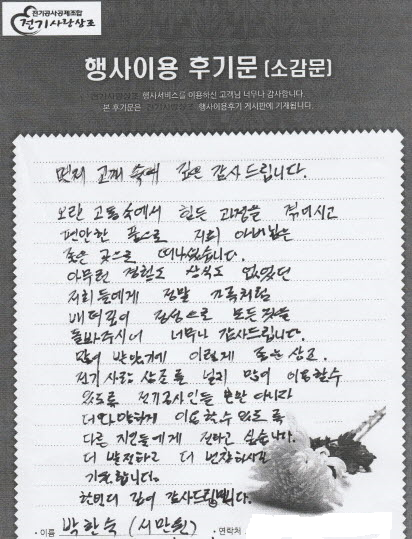 전기공사공제조합
전기사랑상조
행사이용 후기문 (소감문)
전기사랑상조 행사서비스를 이용하신 고객님 너무나 감사합니다.
본 후기문은 전기사랑상조 행사이용후기 게시판에 기재됩니다.
먼저 고개 숙여 깊은 감사드립니다.
오랜 고통속에서 힘든 과정을 겪으시고
편안한 몸으로 저희 아버님은
좋은 곳으로 떠나셨습니다.
아무런 경험도 상식도 없었던
저희들에게 정말 가족처럼
내 더없이 정성으로 모든 것을
돌봐주시어 너무나 감사드립니다.
많이 받았기에 이렇게 좋은 상조.
전기사랑 상조를 널리 많이 이용할수
있도록 전기공사인들 뿐만 아니라
더 다양하게 이용할수 있도록
다른 지인들에게 전하고 싶습니다.
더 발전하고 더 번창하시길
기원합니다.
한번더 깊이 감사드립니다.
· 이름 박한숙 (서만원) · 연락처